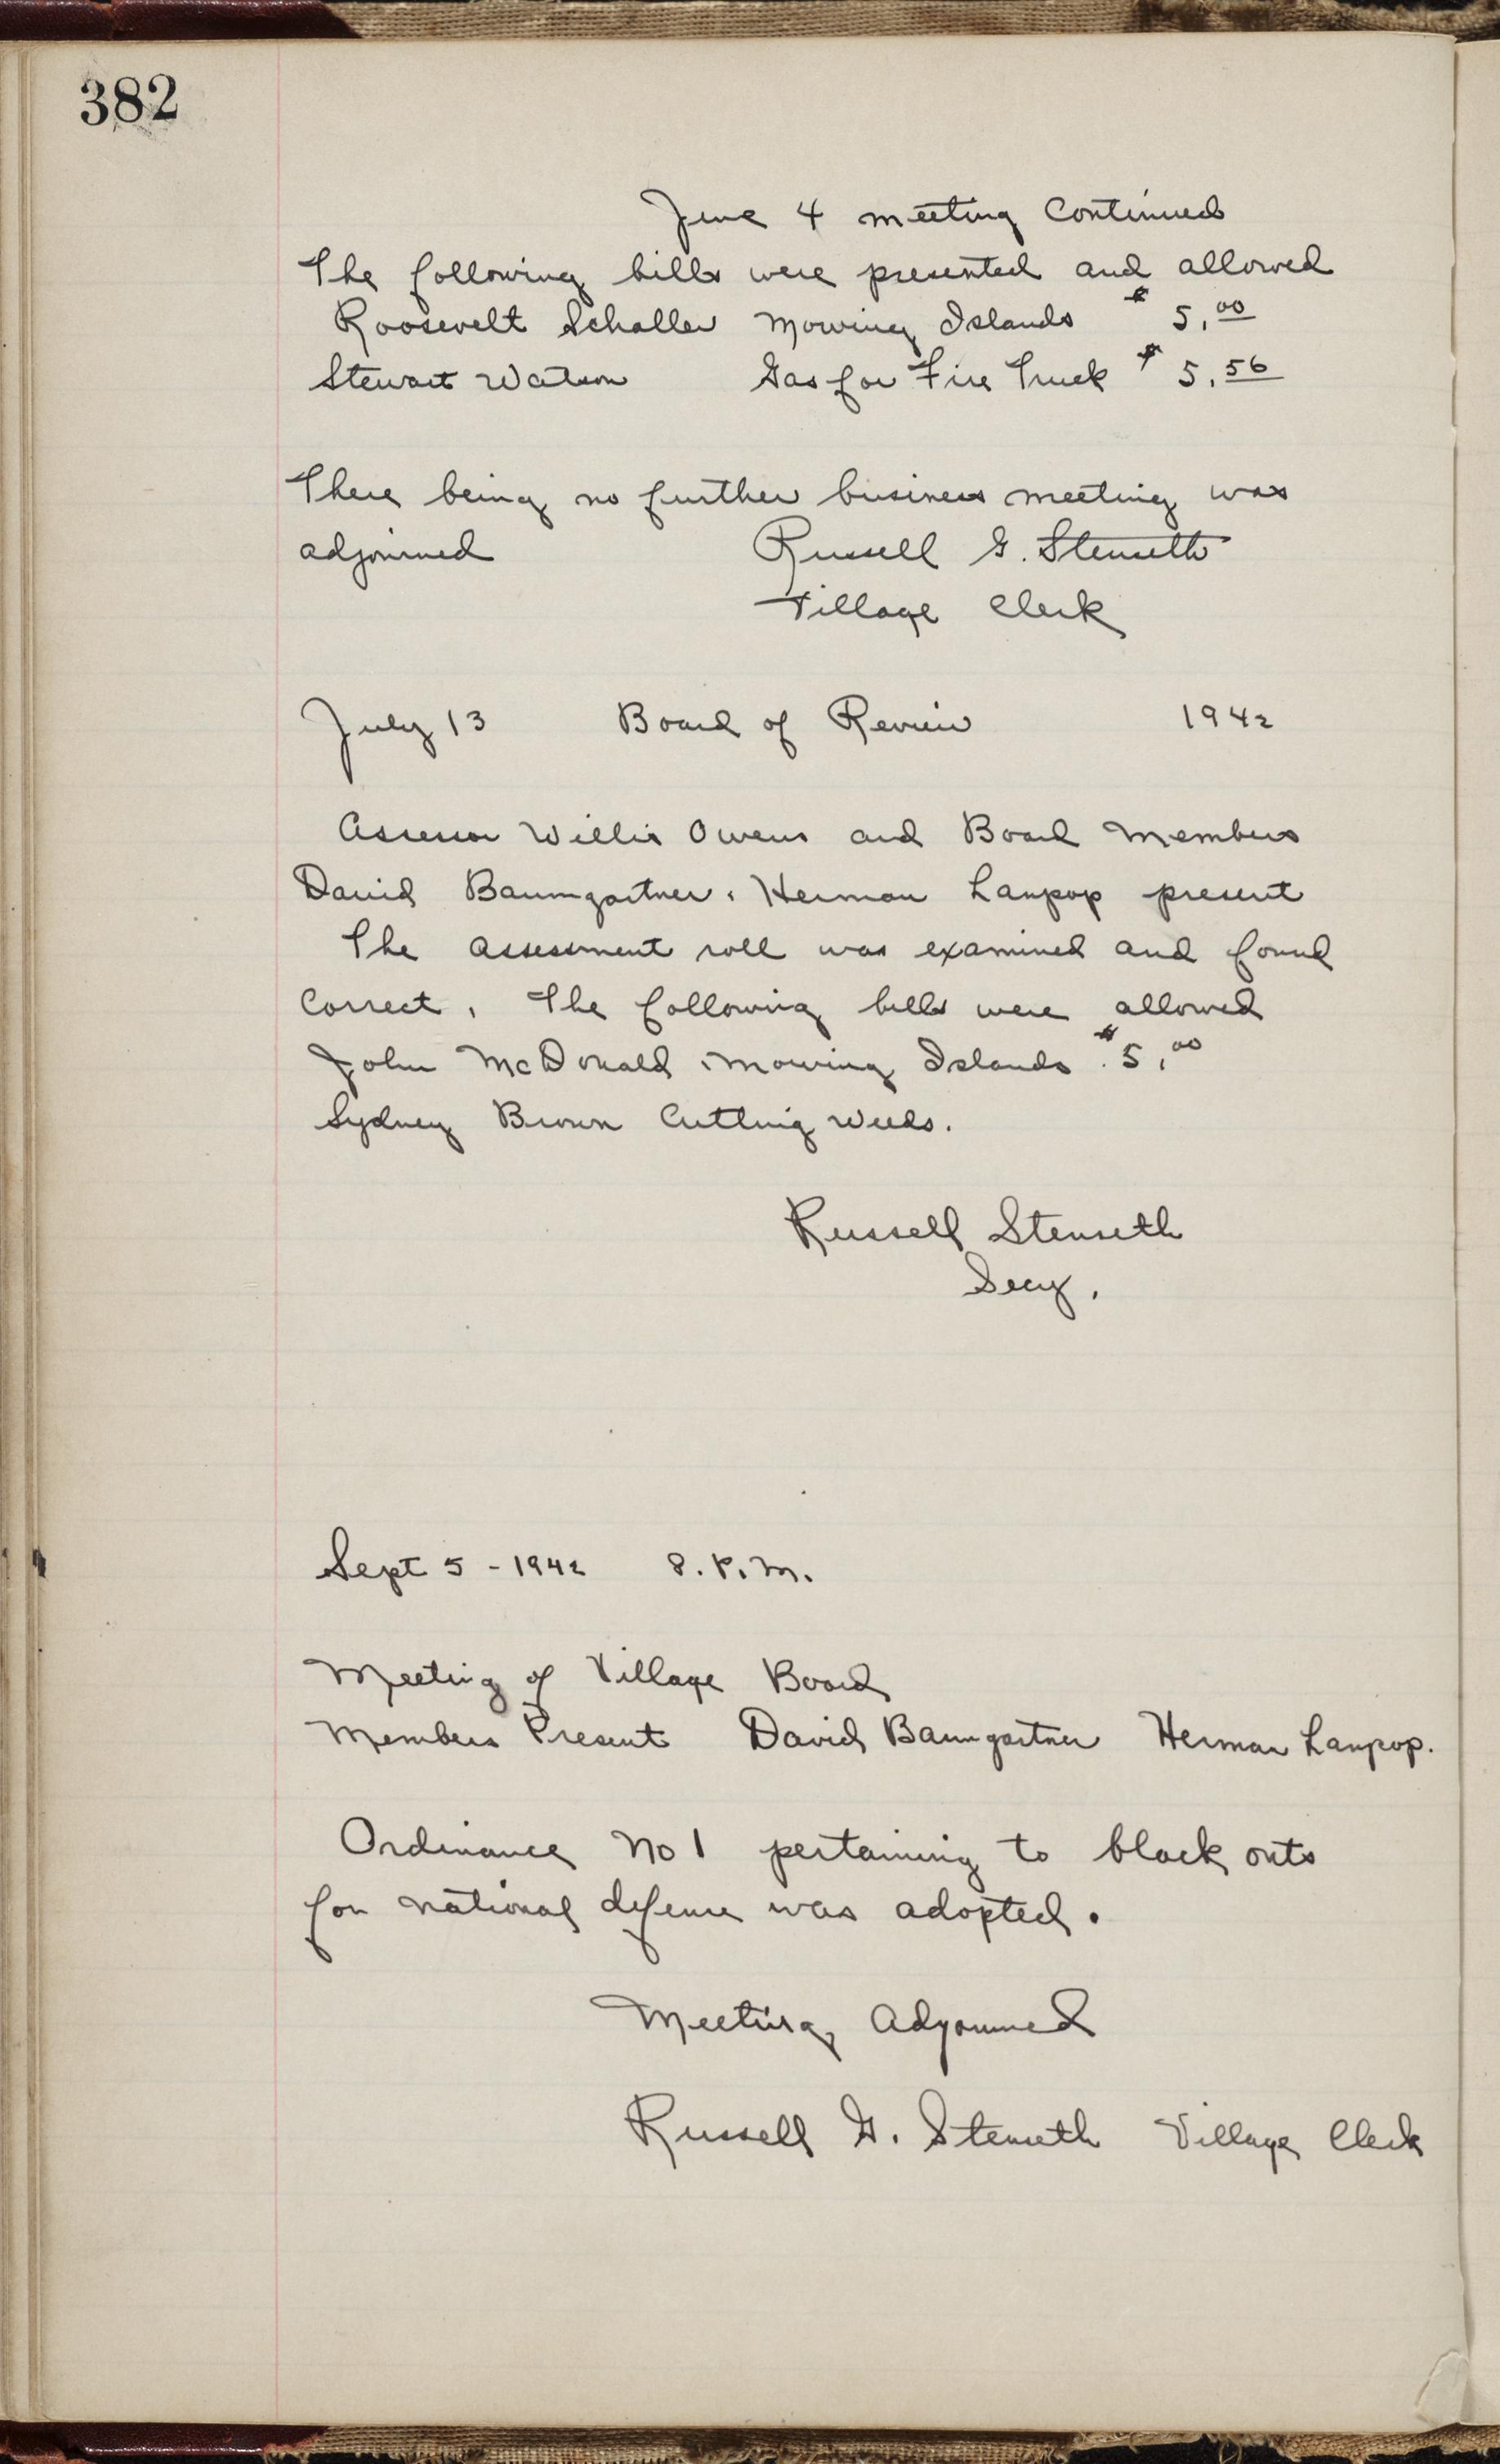 382
June 4 meeting Continued
The following bills were presented and allowed
Roosevelt Schaller Mowing Islands $ 5.00
Stewart Watson Gas for Fire Truck $ 5.56
There being no further business meeting was
adjourned Russell G. Stenseth
Village Clerk
July 13 Board of Review 1942
Assessor Willis Owens and Board Members
David Baumgartner, Herman Laupop present
The assessment roll was examined and found
Correct. The following bills were allowed
John McDonald Mowing Islands $5.00
Sydney Brown Cutting Weeds.
Russell Stenseth
Secy.
Sept 5 - 1942 8. P.M.
Meeting of Village Board
Members Present David Baumgartner Herman Laupop.
Ordinance No 1 pertaining to black outs
for national defense was adopted.
Meeting Adjourned
Russell G. Stenseth Village Clerk